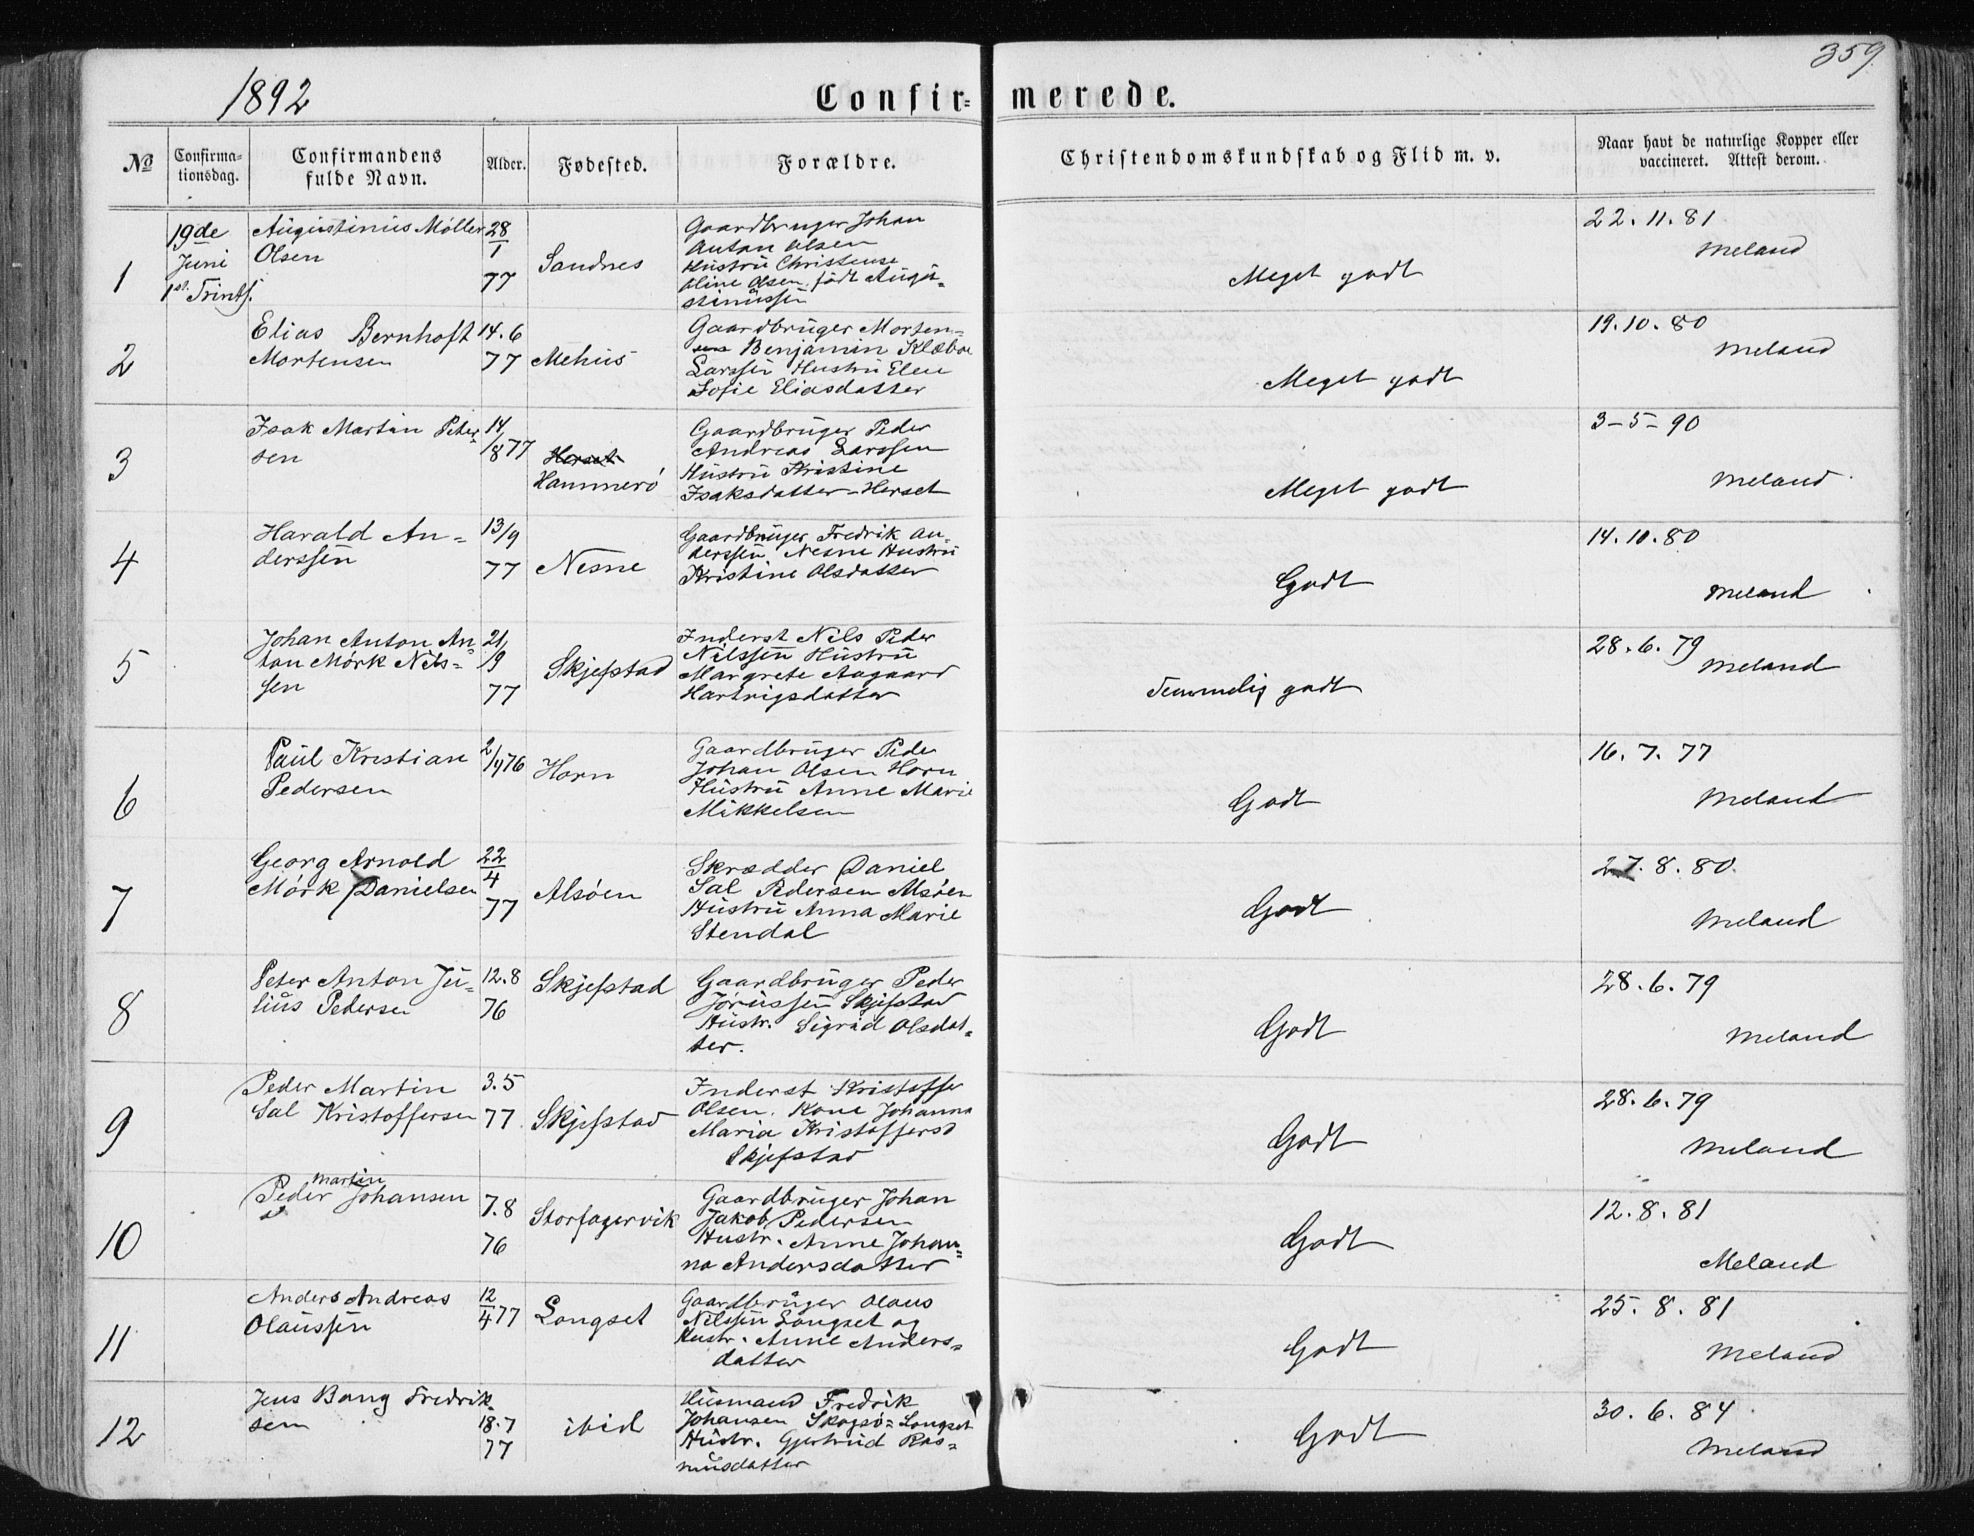 359
1892
Confir= merede.
No
Confirma-
tionsdag.
Confirmandens
fulde Navn.
Alder.
Fødested.
Forældre.
Christendomskundskab og Flid m. v.
Naar havt de naturlige Kopper eller
vaccineret. Attest derom.
1
19de
Juni
1st Trinit.
Augustinus Möller
Olsen
28
1
77
Sandnes
Gaardbruger Johan
Anton Olsen
Hustru Christense
Oline Olsen født Augu-
stinussen
Meget godt
22.11.81
Meland
2
Elias Bernhoft
Mortensen
14.6
77
Mehus
Gaardbruger Morten-
Benjamin Klæboe
Larssen Hustru Elen
Sofie Eliasdatter
Meget godt
19.10.80
Meland
3
Isak Martin Peder-
sen
14
/877
Herset
Hammerö
Gaardbruger Peder
Andreas Larssen
Hustru Kristine
Isaksdatter-Herset
Meget godt
3-5-90
Meland
4
Harald An-
derssen
13/9
77
Nesne
Gaardbruger Fredrik An-
derssen Nesne Hustru
Kristine Olsdatter
Godt
14.10.80
Meland
5
Johan Anton An-
ton Mörk Nils-
sen
21
/9
77
Skjefstad
Inderst Nils Peder
Nilssen Hustru
Margrete Aagaard
Hartvigsdatter
Temmelig godt
28.6.79
Meland
6
Paul Kristian
Pedersen
2
/976
Horn
Gaardbruger Peder
Johan Olsen Horn
Hustru Anne Marie
Mikkelsen
Godt
16.7.77
Meland
7
Georg Arnold
Mörk Danielsen
22
4
77
Alsöen
Skrædder Daniel
Sal Pedersen Alsöen
Hustru Anna Marie
Stendal
Godt
27.8.80
Meland
8
Peter Anton Ju-
lius Pedersen
12.8
76
Skjefstad
Gaardbruger Peder
Jörussen Skjefstad
Hustr. Sigrid Olsdat-
ter.
Godt
28.6.79
Meland
9
Peder Martin
Sal Kristoffersen
3.5
77
Skjefstad
Inderst Kristoffer
Olsen. Kone Johanna
Maria Kristoffersd
Skjefstad
Godt
28.6.79
Meland
10
Martin
Peder Johansen
7.8
76
Storfagervik
Gaardbruger Johan
Jakob Pedersen
Hustr. Anne Johan-
na Andersdatter
Godt
12.8.81
Meland
11
Anders Andreas
Olaussen
12
4 77
Longset
Gaardbruger Olaus
Nilssen Longset og
Hustr. Anne Anders-
datter
Godt
25.8.81
Meland
12
Jens Bang Fredrik-
sen
18.7
77
ibid
Husmand Fredrik
Johansen Skogsö=Longset
Hustr. Gjertrud Ras-
musdatter
Godt
30.6.84
Meland